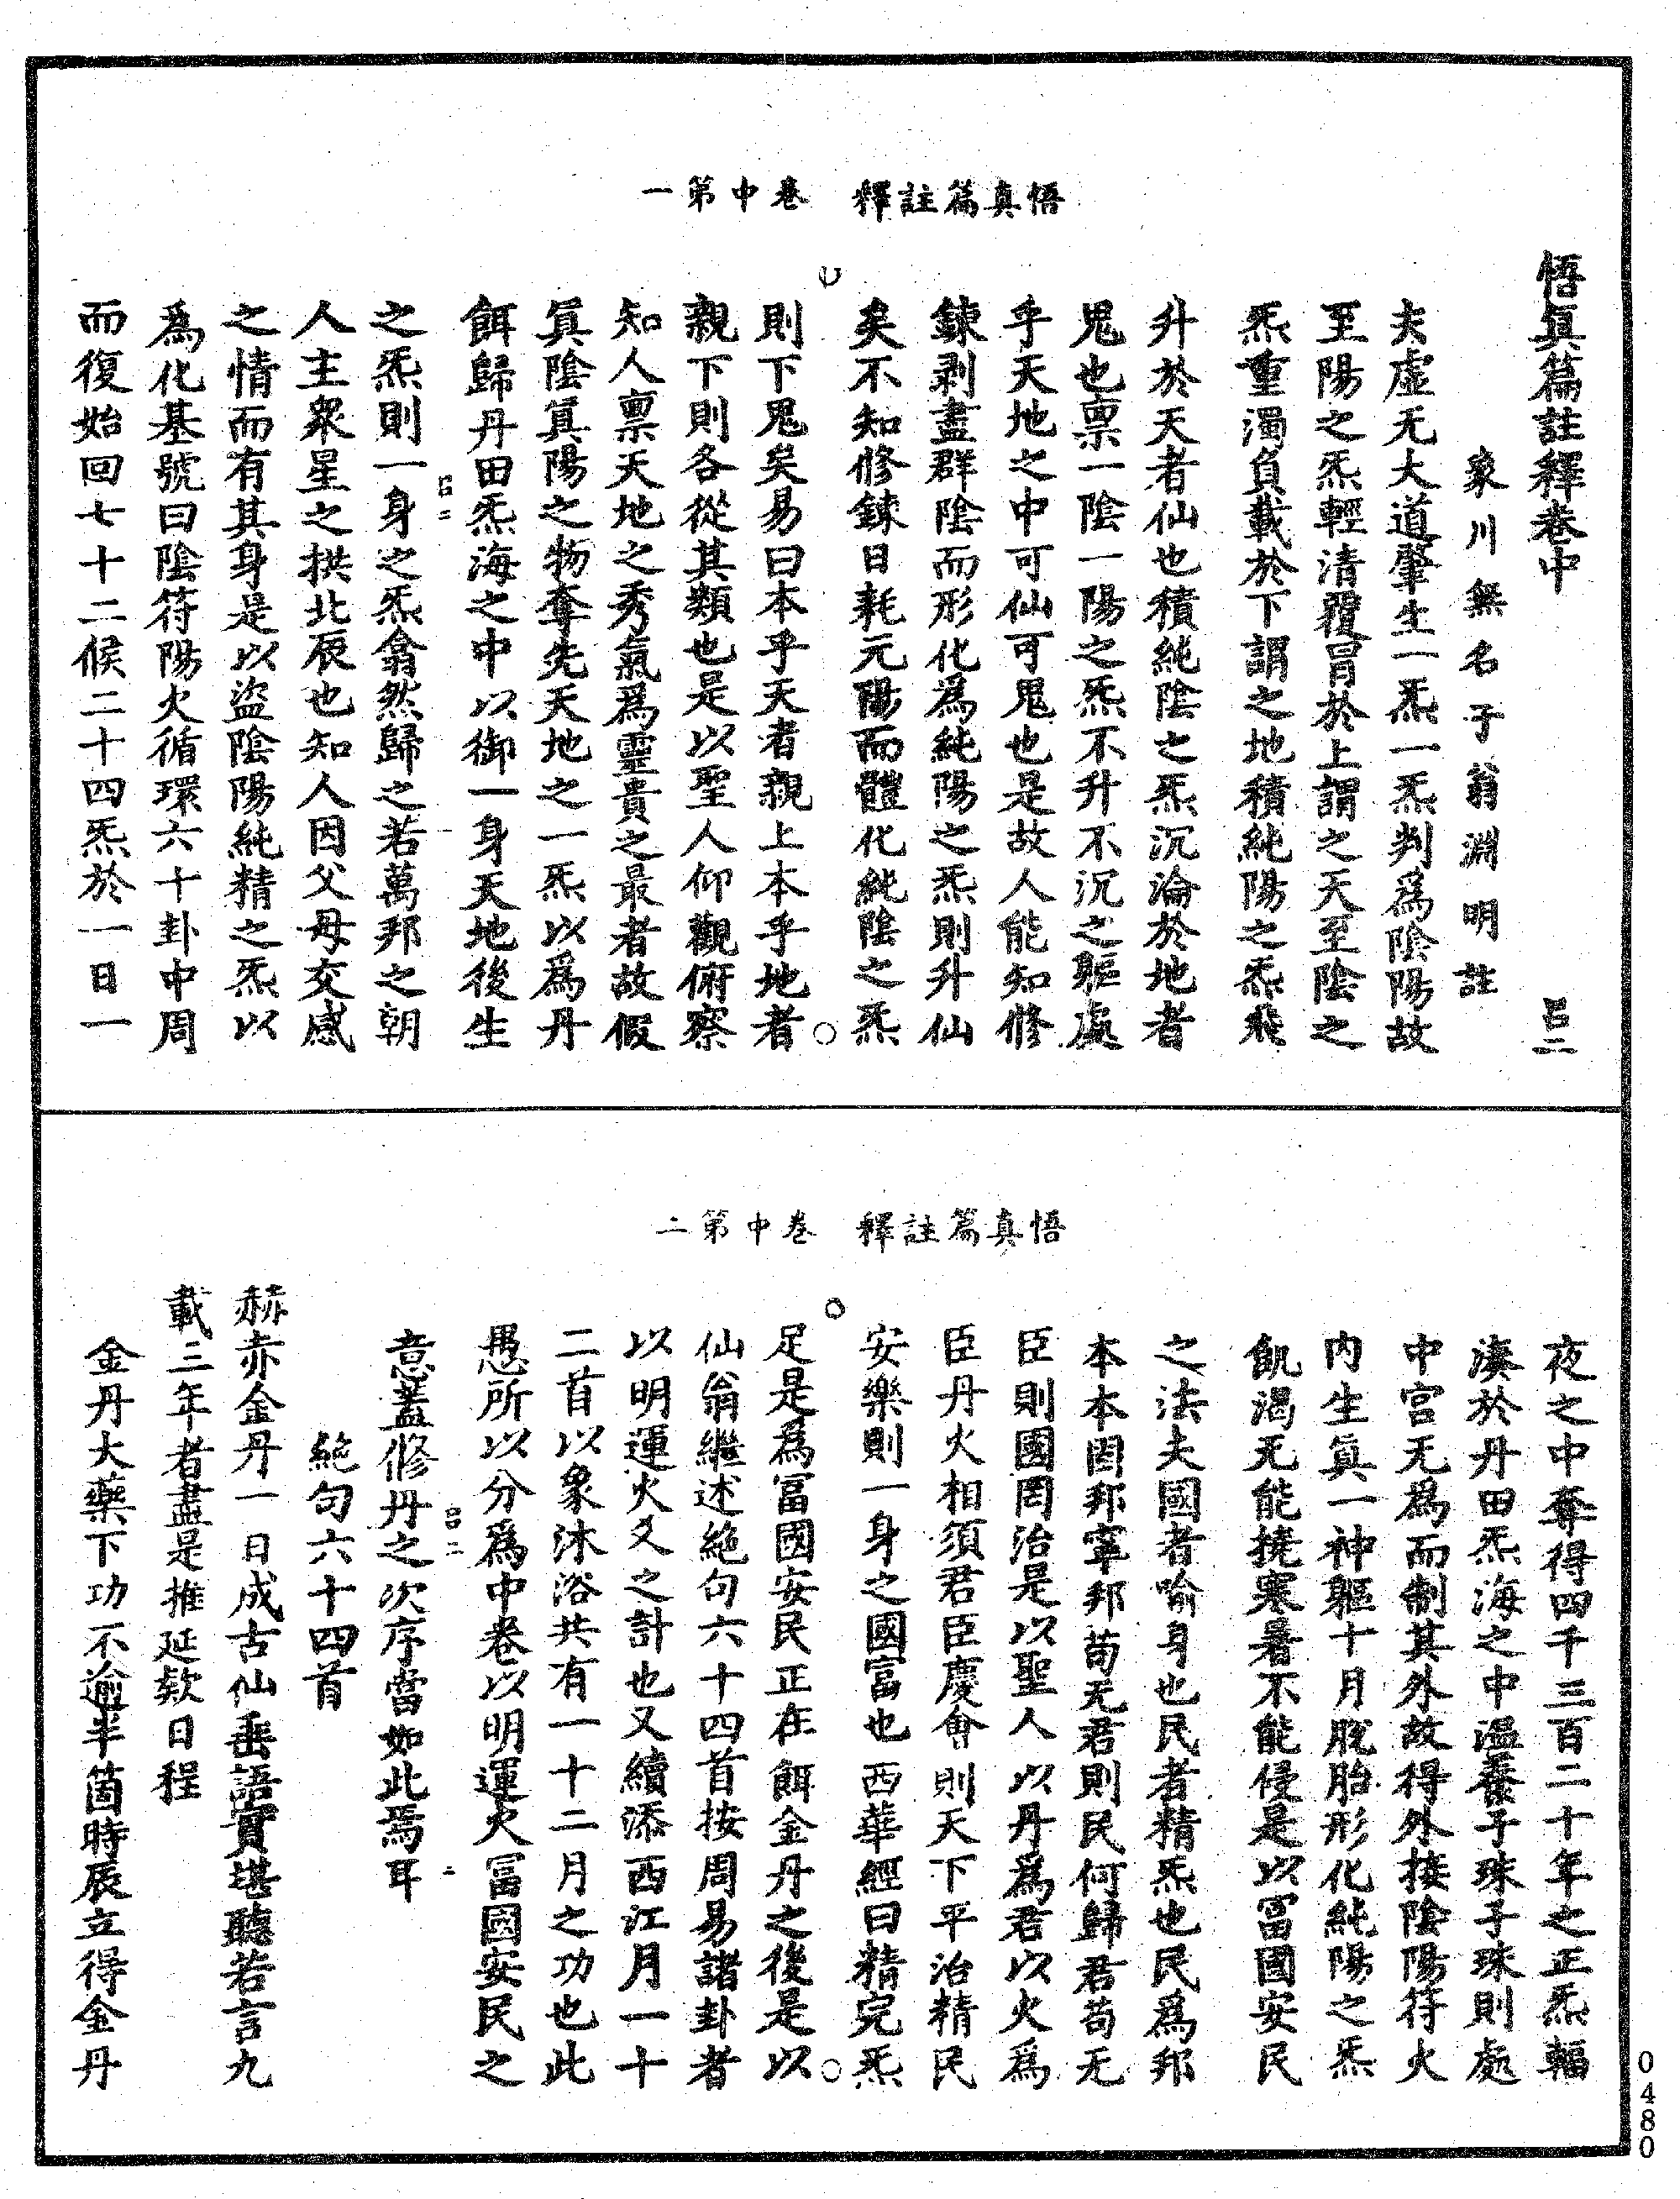 悟真篇註釋　卷中第一
悟眞篇註釋卷中　吕二
象川無名子翁淵明註
夫虛无大道肇生一炁一炁判爲陰陽故
至陽之炁輕清覆冒於上謂之天至陰之
炁重濁負載於下謂之地積純陽之炁飛
升於天者仙也積純陰之炁沉淪於地者
鬼也禀一陰一陽之炁不升不沉之軀處
乎天地之中可仙可鬼也是故人能知修
鍊剥盡群陰而形化爲純陽之炁則升仙
矣不知修鍊日耗元陽而體化純陰之炁
則下鬼矣易曰本乎天者親上本乎地者
親下則各從其類也是以聖人仰觀俯察
知人禀天地之秀氣爲靈貴之最者故假
眞陰眞陽之物奪先天地之一炁以爲丹
餌歸丹田炁海之中以御一身天地後生
吕二
之炁則一身之炁翕然歸之若萬邦之朝
人主衆星之拱北辰也知人因父母交感
之情而有其身是以盜陰陽純精之炁以
為化基號曰陰符陽火循環六十卦中周
而復始回七十二候二十四炁於一日一
悟真篇註釋　卷中第二
夜之中奪得四千三百二十年之正炁輻
湊於丹田炁海之中温養子珠子珠則處
中宫无爲而制其外故得外接陰陽符火
内生眞一神軀十月脫胎形化純陽之炁
飢渴无能撓寒暑不能侵是以冨國安民
之法夫國者喻身也民者精炁也民爲邦
本本固邦寧邦苟无君則民何歸君苟无
臣則國罔治是以聖人以丹爲君以火爲
臣丹火相須君臣慶會則天下平治精民
安樂則一身之國富也西華經曰精完炁
足是爲冨國安民正在餌金丹之後是以
仙翁繼述絶句六十四首按周易諸卦者
以明運火爻之計也又續添西江月一十
二首以象沐浴共有一十二月之功也此
愚所以分爲中卷以明運火冨國安民之
吕二　二
意蓋修丹之次序當如此焉耳
絶句六十四首
赫赤金丹一日成古仙垂語實堪聽若言九
載三年者盡是推延欵日程
金丹大藥下功不逾半箇時辰立得金丹
0480